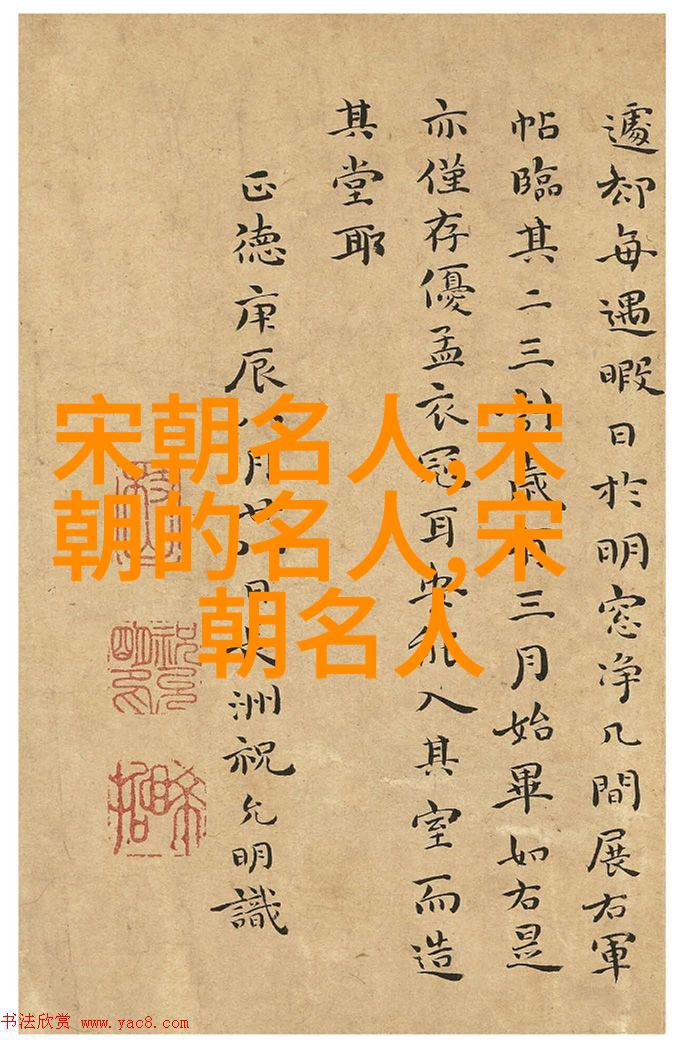 遽却每遇暇日於明窓净几間展右軍
帖臨其二三引歲有三月始畢如右是
亦僅存優孟衣冠耳能入其室而造
其堂耶
正德庚辰月日洲祝允明識
宋朝名人,宋
朝的名人,宋
朝名人
书法欣赏 www.yac8.com